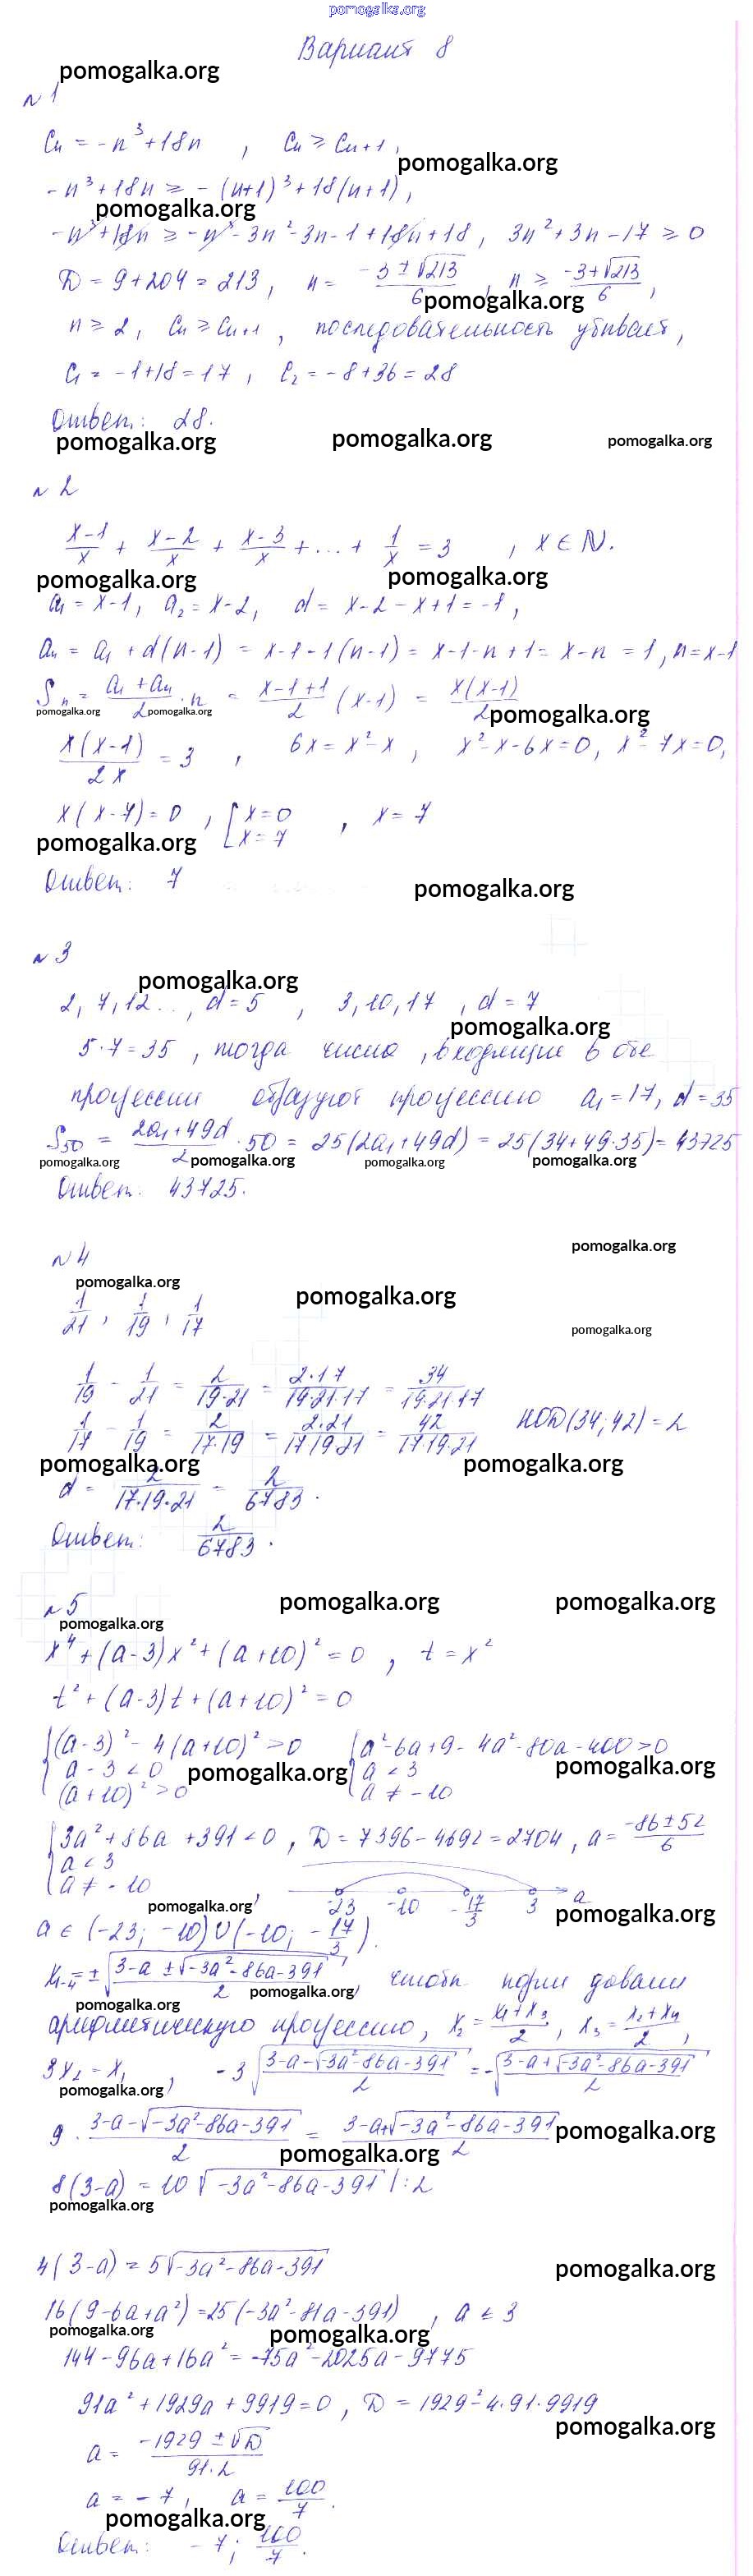 pomogalka.org
Вариант 8
pomogalka.org
№1
Cn = -n³+18n , Cn ≥ Cn+1,
pomogalka.org
-n³+18n ≥ -(n+1)³+18(n+1),
pomogalka.org
-n³+18n ≥ -n³-3n²-3n-1+18n+18, 3n²+3n-17 ≥ 0
D = 9+204 = 213, n = (-3±√213)/6, n ≥ (-3+√213)/6,
pomogalka.org
n ≥ 2, Cn ≥ Cn+1, последовательность убывает,
C1 = -1+18 = 17, C2 = -8+36 = 28
Ответ: 28.
pomogalka.org pomogalka.org pomogalka.org
№2
(x-1)/x + (x-2)/x + (x-3)/x + ... + 1/x = 3 , x ∈ N.
pomogalka.org pomogalka.org
a1 = x-1, a2 = x-2, d = x-2-x+1 = -1,
an = a1 + d(n-1) = x-1-1(n-1) = x-1-n+1 = x-n = 1, n=x-1
Sn = (a1+an)/2 · n = (x-1+1)/2 (x-1) = x(x-1)/2
pomogalka.org pomogalka.org pomogalka.org
x(x-1)/2x = 3 , 6x = x²-x , x²-x-6x=0, x²-7x=0,
x(x-7)=0 , [x=0 x=7 , x=7
pomogalka.org
Ответ: 7
pomogalka.org
№3
pomogalka.org
2, 7, 12..., d=5 , 3, 10, 17 , d=7
pomogalka.org
5·7=35 , тогда числа, входящие в обе
прогрессии образуют прогрессию a1=17, d=35
S50 = (2a1+49d)/2 · 50 = 25(2a1+49d) = 25(34+49·35) = 43725
pomogalka.org pomogalka.org pomogalka.org pomogalka.org
Ответ: 43725.
№4
pomogalka.org
pomogalka.org
pomogalka.org
1/21 , 1/19 , 1/17
pomogalka.org
1/19 - 1/21 = 2/(19·21) = (2·17)/(19·21·17) = 34/(19·21·17)
1/17 - 1/19 = 2/(17·19) = (2·21)/(17·19·21) = 42/(17·19·21) НОД(34;42)=2
pomogalka.org pomogalka.org
d = 2/(17·19·21) = 2/6783.
Ответ: 2/6783.
pomogalka.org pomogalka.org
№5
pomogalka.org
x⁴+(a-3)x²+(a+10)²=0 , t=x²
t²+(a-3)t+(a+10)²=0
{(a-3)²-4(a+10)²>0 {a²-6a+9-4a²-80a-400>0
a-3<0 a<3
pomogalka.org pomogalka.org
(a+10)²>0 a≠-10
{3a²+86a+391<0, D=7396-4692=2704, a=(-86±52)/6
a<3
a≠-10 ,
-23 -10 -17/3 3 a
pomogalka.org pomogalka.org
a ∈ (-23; -10)∪(-10; -17/3).
x1-4 = ±√((3-a±√(-3a²-86a-391))/2), чтобы корни давали
pomogalka.org pomogalka.org
арифметическую прогрессию, x2=(x1+x3)/2, x3=(x2+x4)/2,
3x2=x1 , -3√((3-a-√(-3a²-86a-391))/2) = -√((3-a+√(-3a²-86a-391))/2)
pomogalka.org
9·(3-a-√(-3a²-86a-391))/2 = (3-a+√(-3a²-86a-391))/2
pomogalka.org
pomogalka.org
8(3-a) = 10√(-3a²-86a-391) |:2
pomogalka.org
4(3-a) = 5√(-3a²-86a-391)
pomogalka.org
16(9-6a+a²)=25(-3a²-81a-391) , a<3
pomogalka.org pomogalka.org
144-96a+16a²=-75a²-2025a-9775
91a²+1929a+9919=0, D=1929²-4·91·9919
pomogalka.org
a = (-1929±√D)/(91·2)
a = -7, a = 100/7.
pomogalka.org
Ответ: -7; 100/7.